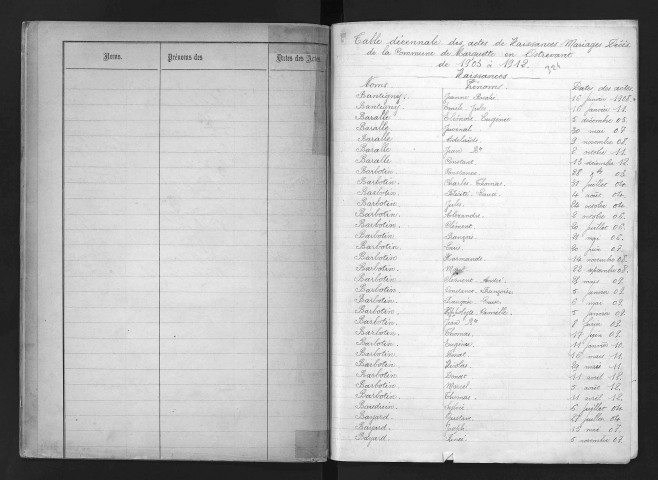 Noms.
Prénoms des
Dates des Actes
Table décennale des actes de Naissances Mariages Décès
de la Commune de Marquette en Ostrevant
de 1903 à 1912.
Naissances
Noms Prénoms. Dates des actes
Bantigny. 16 janvier 1908.
Bantigny. Emile Jules 16 janvier 11.
Baralle Eugène 5 décembre 03.
Baralle Juvénal 30 mai 07
Baralle Adélaïde 9 novembre 08.
Baralle Jean Bte 2 octobre 11.
Baralle Constant 13 décembre 12
Barbotin. Constance 28 9bre 03.
Barbotin. Charles Thomas. 31 juillet 04.
Barbotin. 4 août 04.
Barbotin. Jules. 24 octobre 04.
Barbotin. Alexandre. 2 octobre 06.
Barbotin. Clément 20 juillet 06.
Barbotin. François. 21 mai 06.
Barbotin. Louis. 20 juin 07.
Barbotin. Normande. 14 novembre 08.
Barbotin. 22 septembre 08.
Barbotin. Clément André. mars 09.
Barbotin. Constant François 5 janvier 09.
Barbotin. mai 09.
Barbotin. Hippolyte Camille. 5 janvier 09.
Barbotin. Jean Bte 8 février 09.
Barbotin. Thomas. 17 juin 09.
Barbotin. Eugène. 11 janvier 10.
Barbotin. Ernest. 16 mars 11.
Barbotin. Nicolas. 29 mars 11.
Barbotin Ernest 11 avril 12.
Barbotin. Marcel. 5 août 12.
Barbotin. Thomas. 11 avril 12.
Bauduin. 6 juillet 04.
Bayard. Gustave. 27 juillet 04.
Bayard. Joseph. 13 mai 07.
Bayard. 5 novembre 07.